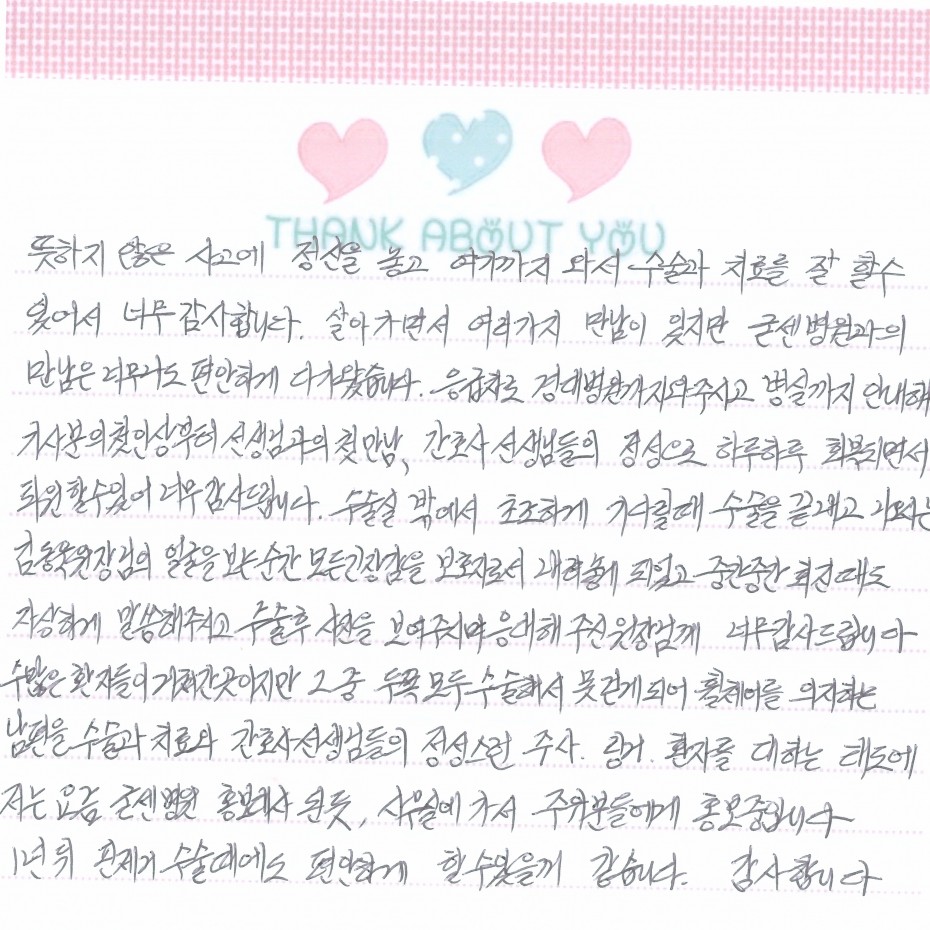 THANK ABOUT YOU
뜻하지 않은 사고에 정신을 놓고 여기까지 와서 수술과 치료를 잘 할수
있어서 너무 감사합니다. 살아가면서 여러가지 만남이 있지만 굳센병원과의
만남은 너무나도 편안하게 다가왔습니다. 응급차로 경대병원까지와주시고 병실까지 안내해
기사분의첫인상부터 선생님과의 첫만남, 간호사 선생님들의 정성으로 하루하루 회복되면서
퇴원할수있어 너무감사드립니다. 수술실 밖에서 초조하게 기다릴때 수술을 끝내고 나오시는
원장님의 얼굴을 보는순간 모든긴장감을 보호자로서 내려놓게 되었고 중간중간 회진때도
자상하게 말씀해주시고 수술후 사진을 보여주시며 응대해 주신 원장님께 너무감사드립니다
수많은 환자들이 거쳐간곳이지만 그중 두쪽모두수술해서 못걷게되어 휠체어를 의지하는
남편을 수술과 치료와 간호사선생님들의 정성스런 주사. 링거. 환자를 대하는 태도에
저는 요즘 굳센병원 홍보대사 된듯, 사무실에 가서 주위분들에게 홍보중입니다
1년뒤 핀제거 수술때에도 편안하게 할수있을거 같습니다. 감사합니다